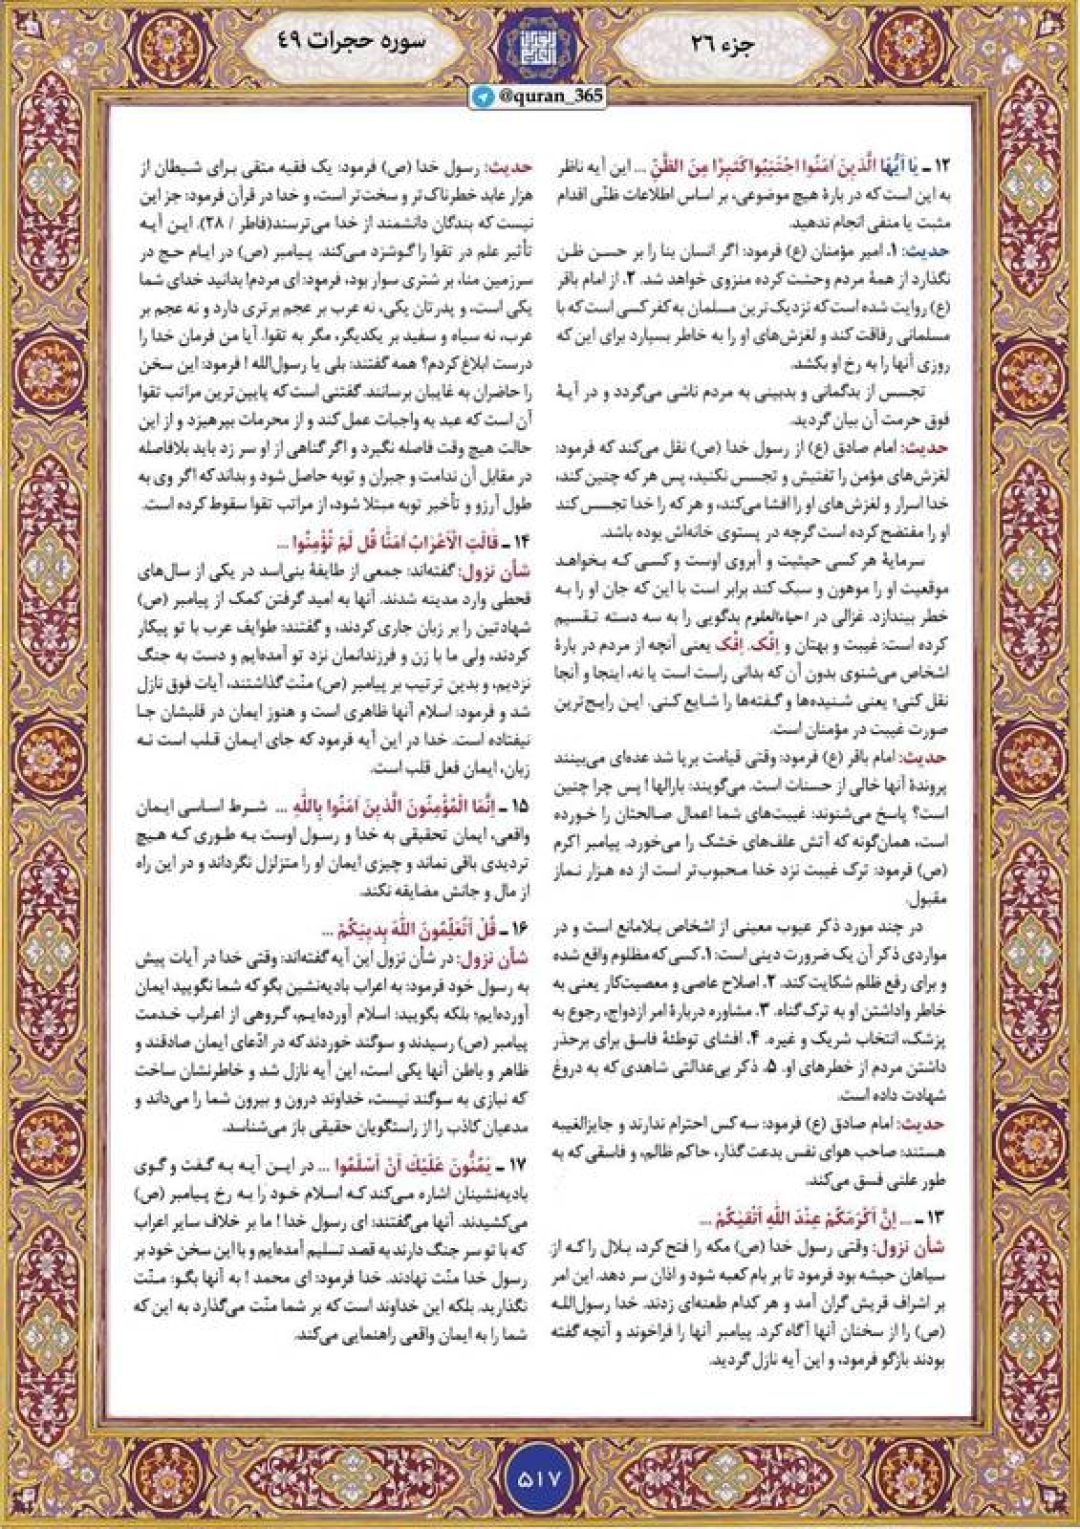 جزء ۲۶
سوره حجرات ۴۹
@quran_365
۱۲ ـ یَا اَیُّهَا الَّذِینَ اٰمَنُوا اجْتَنِبُوا کَثِیرًا مِنَ الظَّنِّ ... این آیه ناظر
به این است که در بارهٔ هیچ موضوعی، بر اساس اطلاعات ظنّی اقدام
مثبت یا منفی انجام ندهید.
حدیث: ۱. امیر مؤمنان (ع) فرمود: اگر انسان بنا را بر حسن ظن
نگذارد از همهٔ مردم وحشت کرده منزوی خواهد شد. ۲. از امام باقر
(ع) روایت شده است که نزدیک‌ترین مسلمان به کفر کسی است که با
مسلمانی رفاقت کند و لغزش‌های او را به خاطر بسپارد برای این که
روزی آنها را به رخ او بکشد.
تجسس از بدگمانی و بدبینی به مردم ناشی می‌گردد و در آیهٔ
فوق حرمت آن بیان گردید.
حدیث: امام صادق (ع) از رسول خدا (ص) نقل می‌کند که فرمود:
لغزش‌های مؤمن را تفتیش و تجسس نکنید، پس هر که چنین کند،
خدا اسرار و لغزش‌های او را افشا می‌کند، و هر که را خدا تجسس کند
او را مفتضح کرده است گرچه در پستوی خانه‌اش بوده باشد.
سرمایهٔ هر کسی حیثیت و آبروی اوست و کسی که بخواهد
موقعیت او را موهون و سبک کند برابر است با این که جان او را به
خطر بیندازد. غزالی در احیاءالعلوم بدگویی را به سه دسته تقسیم
کرده است: غیبت و بهتان و اِفْک. اِفْک یعنی آنچه از مردم در بارهٔ
اشخاص می‌شنوی بدون آن که بدانی راست است یا نه، اینجا و آنجا
نقل کنی؛ یعنی شنیده‌ها و گفته‌ها را شایع کنی. این رایج‌ترین
صورت غیبت در مؤمنان است.
حدیث: امام باقر (ع) فرمود: وقتی قیامت برپا شد عده‌ای می‌بینند
پروندهٔ آنها خالی از حسنات است. می‌گویند: بارالها! پس چرا چنین
است؟ پاسخ می‌شنوند: غیبت‌های شما اعمال صالحتان را خورده
است، همان‌گونه که آتش علف‌های خشک را می‌خورد. پیامبر اکرم
(ص) فرمود: ترک غیبت نزد خدا محبوب‌تر است از ده هزار نماز
مقبول.
در چند مورد ذکر عیوب معینی از اشخاص بلامانع است و در
مواردی ذکر آن یک ضرورت دینی است: ۱. کسی که مظلوم واقع شده
و برای رفع ظلم شکایت کند. ۲. اصلاح عاصی و معصیت‌کار یعنی به
خاطر واداشتن او به ترک گناه. ۳. مشاوره دربارهٔ امر ازدواج، رجوع به
پزشک، انتخاب شریک و غیره. ۴. افشای توطئهٔ فاسق برای برحذر
داشتن مردم از خطرهای او. ۵. ذکر بی‌عدالتی شاهدی که به دروغ
شهادت داده است.
حدیث: امام صادق (ع) فرمود: سه کس احترام ندارند و جایزالغیبه
هستند: صاحب هوای نفس بدعت گذار، حاکم ظالم، و فاسقی که به
طور علنی فسق می‌کند.
۱۳ ـ ... اِنَّ اَکْرَمَکُمْ عِنْدَ اللّٰهِ اَتْقٰیکُمْ ...
شأن نزول: وقتی رسول خدا (ص) مکه را فتح کرد، بلال را که از
سیاهان حبشه بود فرمود تا بر بام کعبه شود و اذان سر دهد. این امر
بر اشراف قریش گران آمد و هر کدام طعنه‌ای زدند. خدا رسول‌اللـه
(ص) را از سخنان آنها آگاه کرد. پیامبر آنها را فراخوند و آنچه گفته
بودند بازگو فرمود، و این آیه نازل گردید.
حدیث: رسول خدا (ص) فرمود: یک فقیه متقی برای شیطان از
هزار عابد خطرناک‌تر و سخت‌تر است، و خدا در قرآن فرمود: جز این
نیست که بندگان دانشمند از خدا می‌ترسند(فاطر / ۲۸). این آیه
تأثیر علم در تقوا را گوشزد می‌کند. پیامبر (ص) در ایام حج در
سرزمین منا، بر شتری سوار بود، فرمود: ای مردم! بدانید خدای شما
یکی است، و پدرتان یکی، نه عرب بر عجم برتری دارد و نه عجم بر
عرب، نه سیاه و سفید بر یکدیگر، مگر به تقوا. آیا من فرمان خدا را
درست ابلاغ کردم؟ همه گفتند: بلی یا رسول‌الله! فرمود: این سخن
را حاضران به غایبان برسانند. گفتنی است که پایین‌ترین مراتب تقوا
آن است که عبد به واجبات عمل کند و از محرمات بپرهیزد و از این
حالت هیچ وقت فاصله نگیرد و اگر گناهی از او سر زد باید بلافاصله
در مقابل آن ندامت و جبران و توبه حاصل شود و بداند که اگر وی به
طول آرزو و تأخیر توبه مبتلا شود، از مراتب تقوا سقوط کرده است.
۱۴ ـ قَالَتِ الْاَعْرَابُ اٰمَنَّا قُلْ لَمْ تُؤْمِنُوا ...
شأن نزول: گفته‌اند: جمعی از طایفهٔ بنی‌اسد در یکی از سال‌های
قحطی وارد مدینه شدند. آنها به امید گرفتن کمک از پیامبر (ص)
شهادتین را بر زبان جاری کردند، و گفتند: طوایف عرب با تو پیکار
کردند، ولی ما با زن و فرزندانمان نزد تو آمده‌ایم و دست به جنگ
نزدیم، و بدین ترتیب بر پیامبر (ص) منّت گذاشتند، آیات فوق نازل
شد و فرمود: اسلام آنها ظاهری است و هنوز ایمان در قلبشان جا
نیفتاده است. خدا در این آیه فرمود که جای ایمان قلب است نه
زبان، ایمان فعل قلب است.
۱۵ ـ اِنَّمَا الْمُؤْمِنُونَ الَّذِینَ اٰمَنُوا بِاللّٰهِ ... شرط اساسی ایمان
واقعی، ایمان تحقیقی به خدا و رسول اوست به طوری که هیچ
تردیدی باقی نماند و چیزی ایمان او را متزلزل نگرداند و در این راه
از مال و جانش مضایقه نکند.
۱۶ ـ قُلْ اَتُعَلِّمُونَ اللّٰهَ بِدِینِکُمْ ...
شأن نزول: در شأن نزول این آیه گفته‌اند: وقتی خدا در آیات پیش
به رسول خود فرمود: به اعراب بادیه‌نشین بگو که شما نگویید ایمان
آورده‌ایم؛ بلکه بگویید: اسلام آورده‌ایم، گروهی از اعراب خدمت
پیامبر (ص) رسیدند و سوگند خوردند که در ادّعای ایمان صادقند و
ظاهر و باطن آنها یکی است، این آیه نازل شد و خاطرنشان ساخت
که نیازی به سوگند نیست، خداوند درون و بیرون شما را می‌داند و
مدعیان کاذب را از راستگویان حقیقی باز می‌شناسد.
۱۷ ـ یَمُنُّونَ عَلَیْكَ اَنْ اَسْلَمُوا ... در این آیه به گفت و گوی
بادیه‌نشینان اشاره می‌کند که اسلام خود را به رخ پیامبر (ص)
می‌کشیدند. آنها می‌گفتند: ای رسول خدا! ما بر خلاف سایر اعراب
که با تو سر جنگ دارند به قصد تسلیم آمده‌ایم و با این سخن خود بر
رسول خدا منّت نهادند. خدا فرمود: ای محمد! به آنها بگو: منّت
نگذارید. بلکه این خداوند است که بر شما منّت می‌گذارد به این که
شما را به ایمان واقعی راهنمایی می‌کند.
۵۱۷